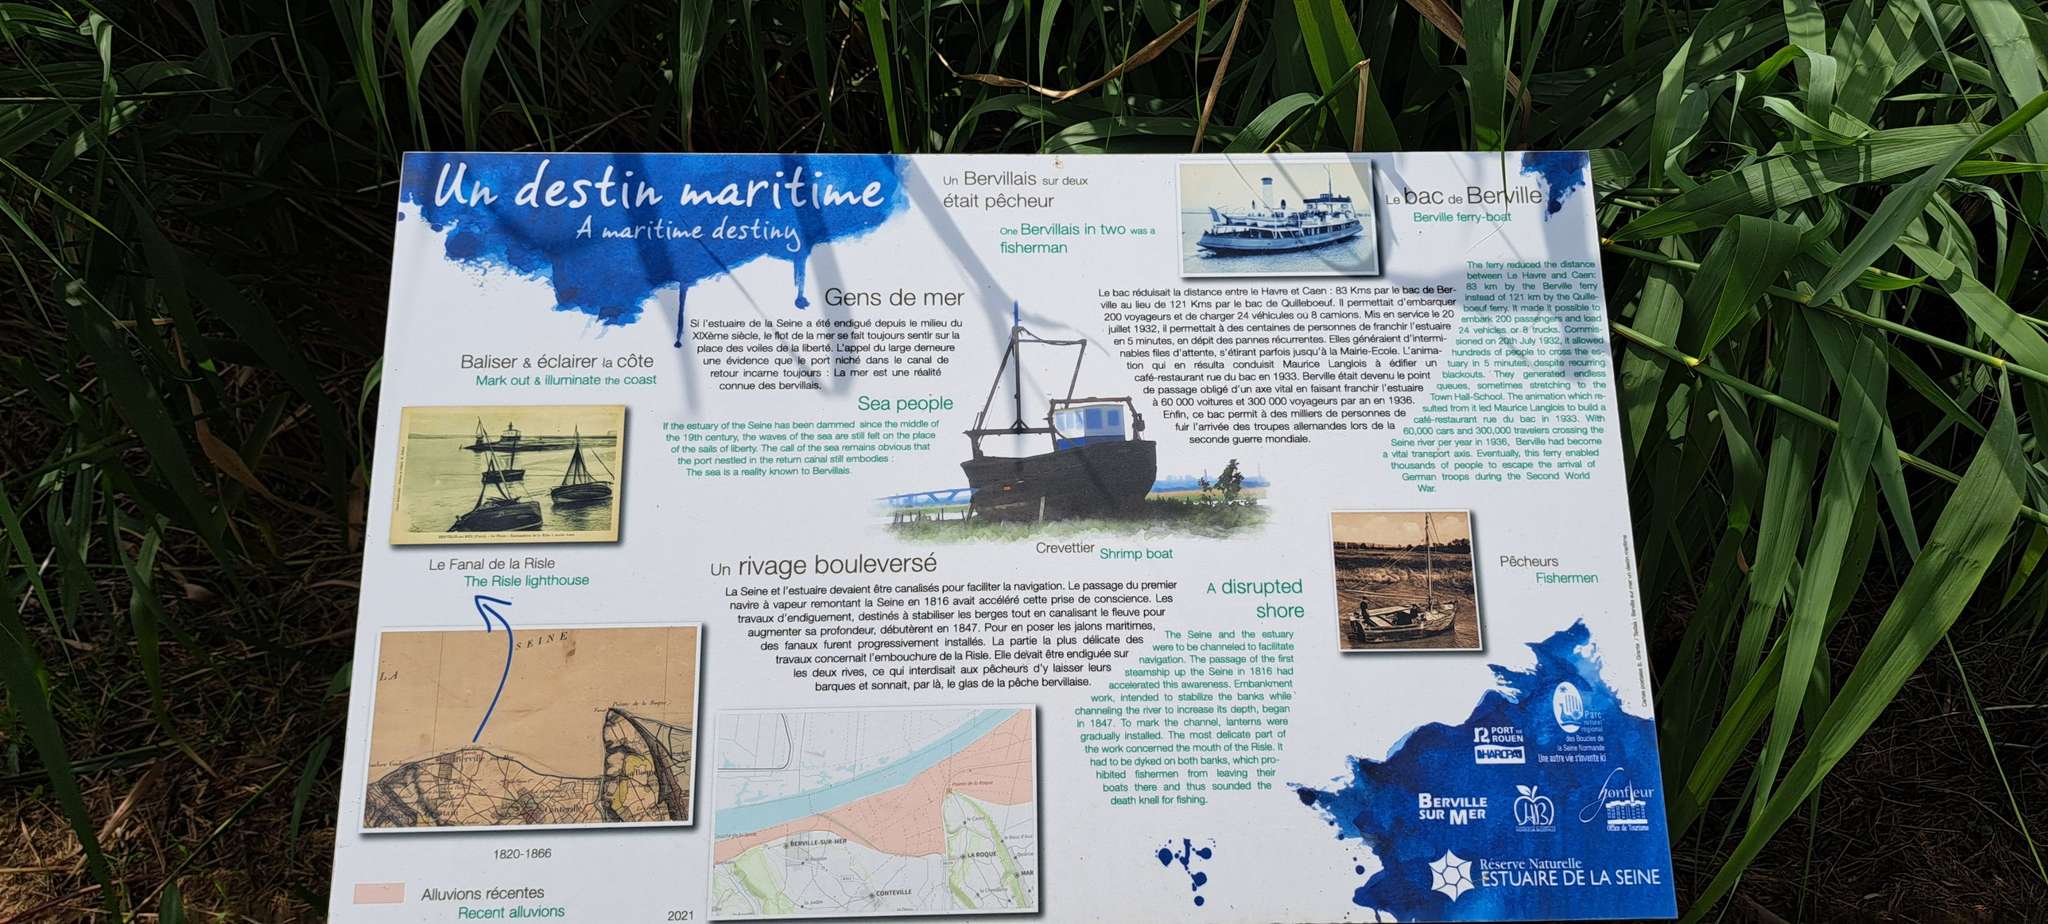 Un destin maritime
A maritime destiny
Gens de mer
Si l'estuaire de la Seine a été endigué depuis le milieu du
XIXème siècle, le flot de la mer se fait toujours sentir sur la
place des voiles de la liberté. L'appel du large demeure
une évidence que le port niché dans le canal de
retour incarne toujours : La mer est une réalité
connue des bervillais.
Sea people
If the estuary of the Seine has been dammed since the middle of
the 19th century, the waves of the sea are still felt on the place
of the sails of liberty. The call of the sea remains obvious that
the port nestled in the return canal still embodies :
The sea is a reality known to Bervillais.
Baliser & éclairer la côte
Mark out & illuminate the coast
Le Fanal de la Risle
The Risle lighthouse
LA
SEINE
Pointe de la Roque
1820-1866
Alluvions récentes
Recent alluvions
2021
Un Bervillais sur deux
était pêcheur
One Bervillais in two was a
fisherman
Le bac de Berville
Berville ferry-boat
Le bac réduisait la distance entre le Havre et Caen : 83 Kms par le bac de Ber-
ville au lieu de 121 Kms par le bac de Quilleboeuf. Il permettait d'embarquer
200 voyageurs et de charger 24 véhicules ou 8 camions. Mis en service le 20
juillet 1932, il permettait à des centaines de personnes de franchir l'estuaire
en 5 minutes, en dépit des pannes récurrentes. Elles généraient d'intermi-
nables files d'attente, s'étirant parfois jusqu'à la Mairie-Ecole. L'anima-
tion qui en résulta conduisit Maurice Langlois à édifier un
café-restaurant rue du bac en 1933. Berville était devenu le point
de passage obligé d'un axe vital en faisant franchir l'estuaire
à 60 000 voitures et 300 000 voyageurs par an en 1936.
Enfin, ce bac permit à des milliers de personnes de
fuir l'arrivée des troupes allemandes lors de la
seconde guerre mondiale.
The ferry reduced the distance
between Le Havre and Caen:
83 km by the Berville ferry
instead of 121 km by the Quille-
boeuf ferry. It made it possible to
embark 200 passengers and load
24 vehicles or 8 trucks. Commis-
sioned on 20th July 1932, it allowed
hundreds of people to cross the es-
tuary in 5 minutes, despite recurring
blackouts. They generated endless
queues, sometimes stretching to the
Town Hall-School. The animation which re-
sulted from it led Maurice Langlois to build a
café-restaurant rue du bac in 1933. With
60,000 cars and 300,000 travelers crossing the
Seine river per year in 1936, Berville had become
a vital transport axis. Eventually, this ferry enabled
thousands of people to escape the arrival of
German troops during the Second World
War.
Crevettier Shrimp boat
Un rivage bouleversé
La Seine et l'estuaire devaient être canalisés pour faciliter la navigation. Le passage du premier
navire à vapeur remontant la Seine en 1816 avait accéléré cette prise de conscience. Les
travaux d'endiguement, destinés à stabiliser les berges tout en canalisant le fleuve pour
augmenter sa profondeur, débutèrent en 1847. Pour en poser les jalons maritimes,
des fanaux furent progressivement installés. La partie la plus délicate des
travaux concernait l'embouchure de la Risle. Elle devait être endiguée sur
les deux rives, ce qui interdisait aux pêcheurs d'y laisser leurs
barques et sonnait, par là, le glas de la pêche bervillaise.
A disrupted
shore
The Seine and the estuary
were to be channeled to facilitate
navigation. The passage of the first
steamship up the Seine in 1816 had
accelerated this awareness. Embankment
work, intended to stabilize the banks while
channeling the river to increase its depth, began
in 1847. To mark the channel, lanterns were
gradually installed. The most delicate part of
the work concerned the mouth of the Risle. It
had to be dyked on both banks, which pro-
hibited fishermen from leaving their
boats there and thus sounded the
death knell for fishing.
Pointe de la Roque
BERVILLE-SUR-MER
LA ROQUE
CONTEVILLE
Pêcheurs
Fishermen
PORT DE
ROUEN
HAROPA
Parc
naturel
régional
des Boucles de
la Seine Normande
Une autre vie s'invente ici
BERVILLE
SUR MER
Honfleur
Office de Tourisme
Réserve Naturelle
ESTUAIRE DE LA SEINE